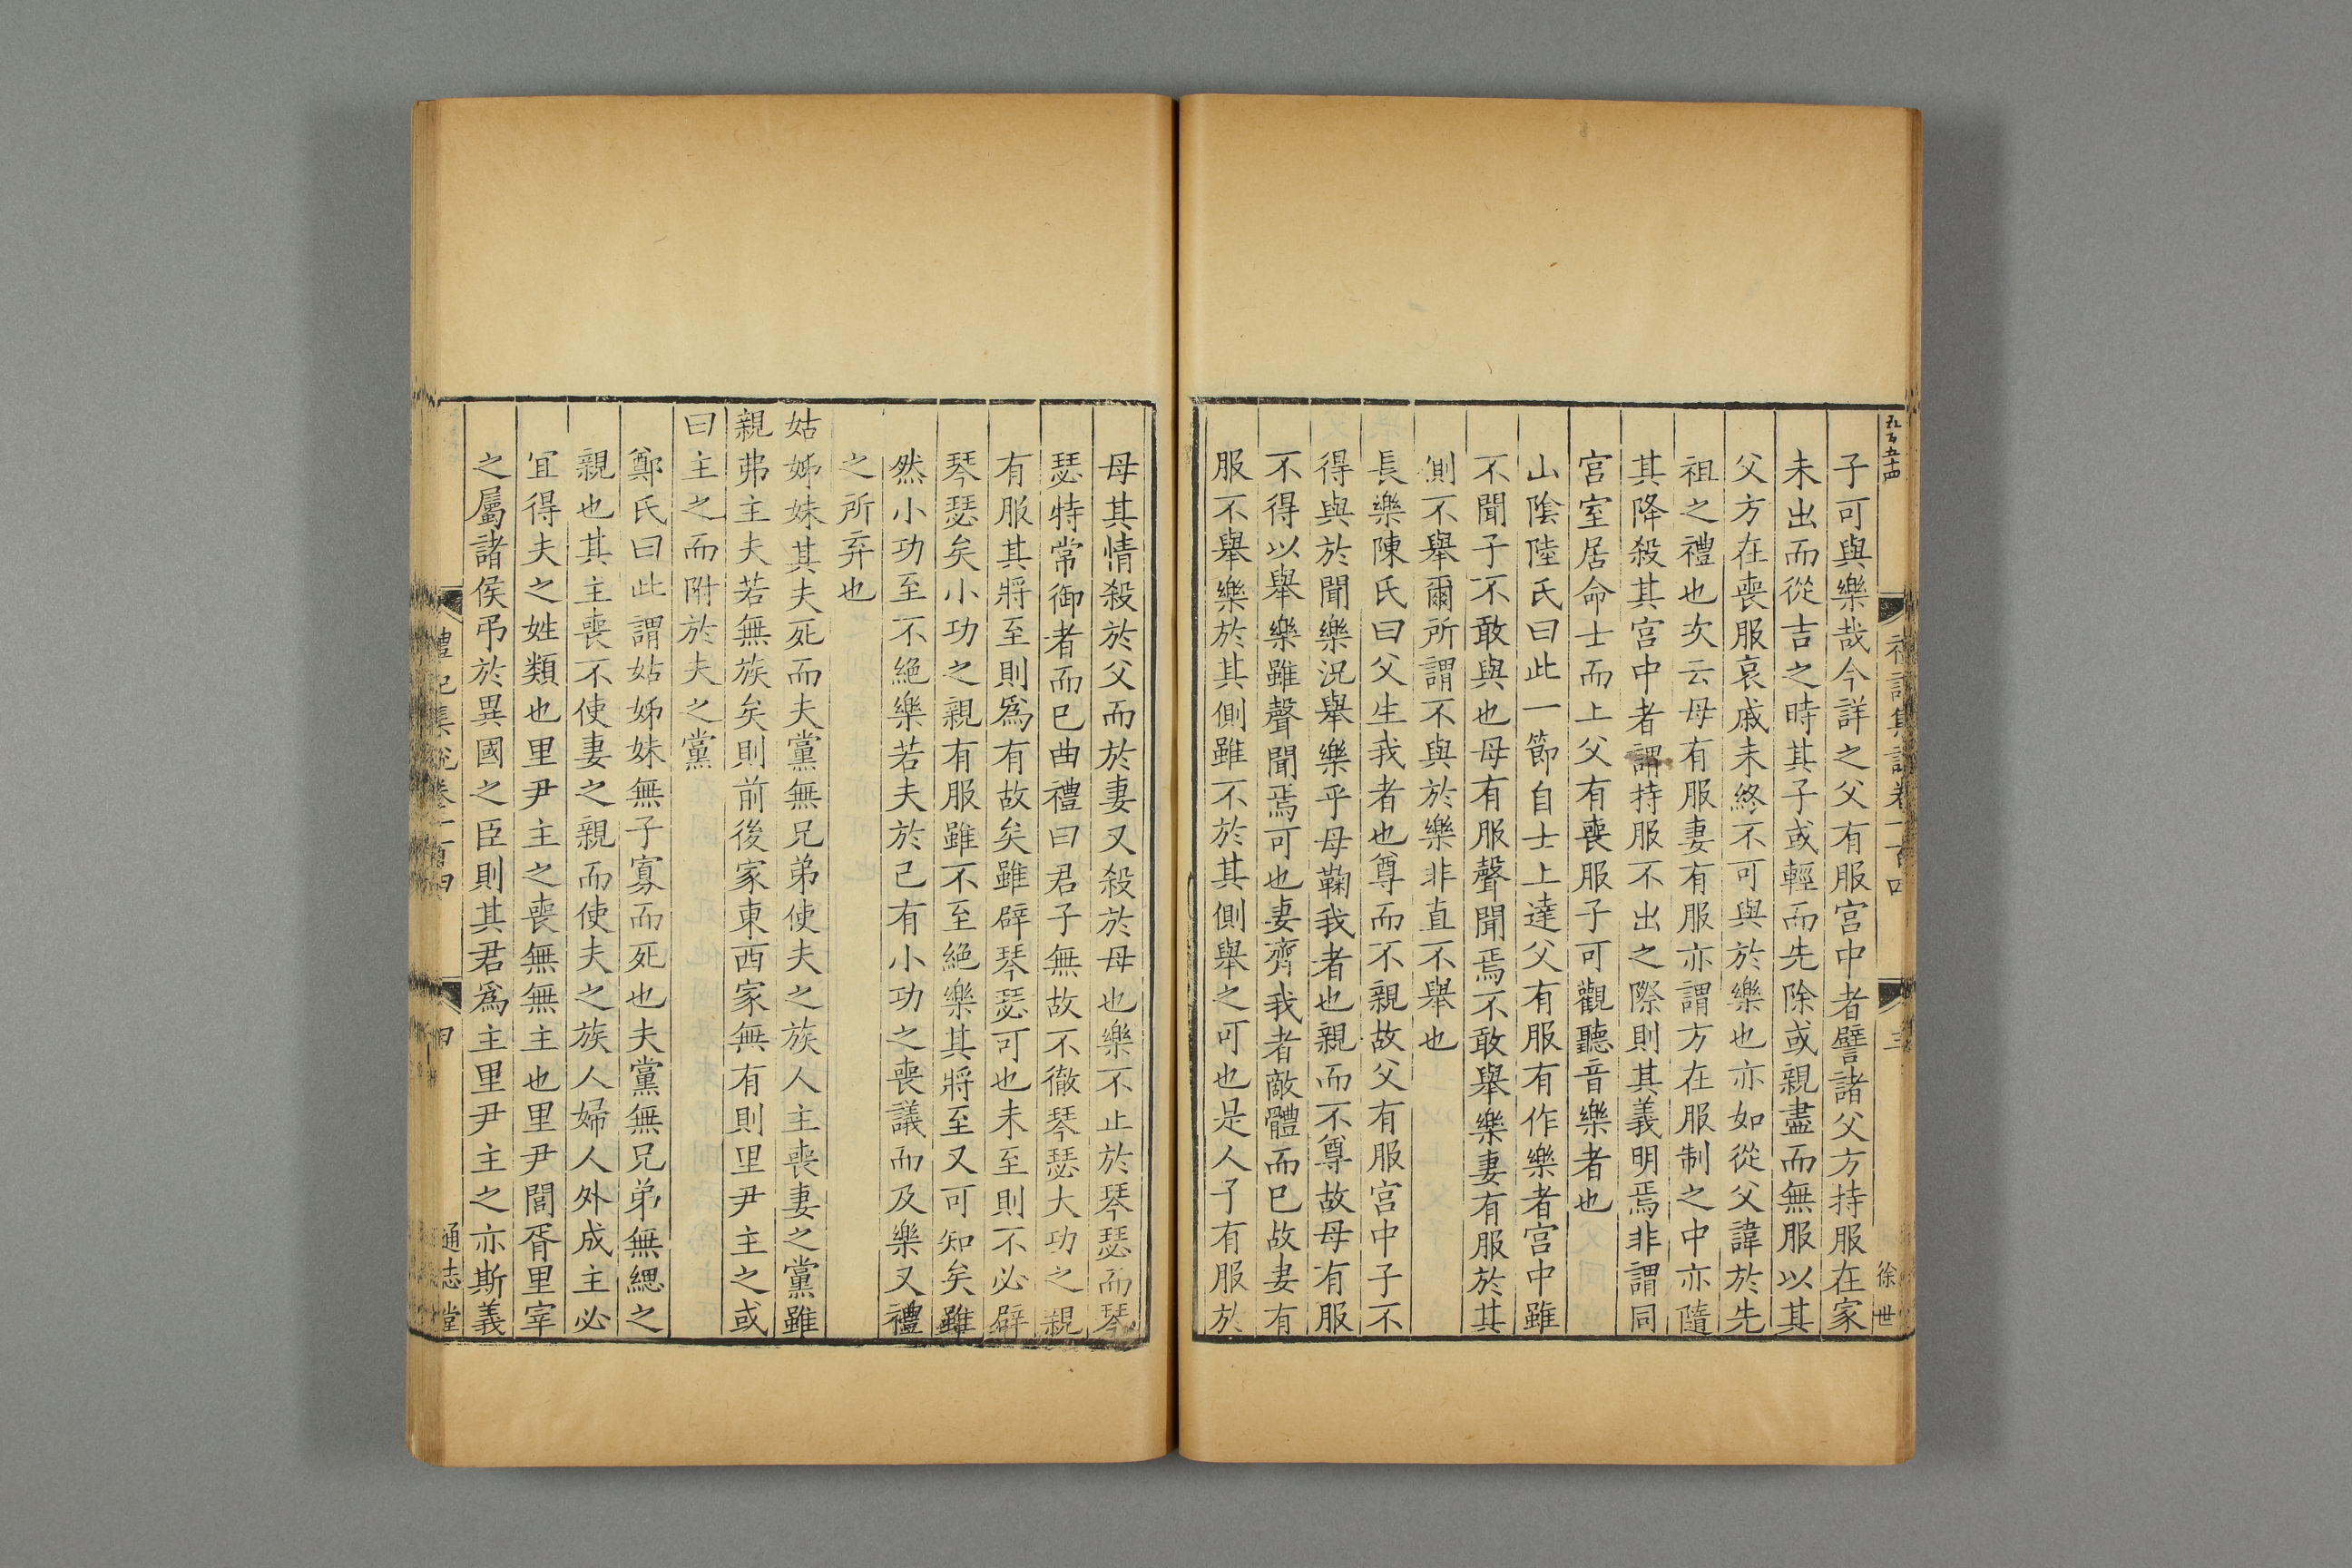 五百五十四
禮記集說卷一百四
三
徐世
子可與樂哉今詳之父有服宮中者譬諸父方持服在家
未出而從吉之時其子或輕而先除或親盡而無服以其
父方在喪服哀戚未終不可與於樂也亦如從父諱於先
祖之禮也次云母有服妻有服亦謂方在服制之中亦隨
其降殺其宮中者謂持服不出之際則其義明焉非謂同
宮室居命士而上父有喪服子可觀聽音樂者也
山陰陸氏曰此一節自士上達父有服有作樂者宮中雖
不聞子不敢與也母有服聲聞焉不敢舉樂妻有服於其
側不舉爾所謂不與於樂非直不舉也
長樂陳氏曰父生我者也尊而不親故父有服宮中子不
得與於聞樂況舉樂乎母鞠我者也親而不尊故母有服
不得以舉樂雖聲聞焉可也妻齊我者敵體而已故妻有
服不舉樂於其側雖不於其側舉之可也是人子有服於
母其情殺於父而於妻又殺於母也樂不止於琴瑟而琴
瑟特常御者而已曲禮曰君子無故不徹琴瑟大功之親
有服其將至則為有故矣雖辟琴瑟可也未至則不必辟
琴瑟矣小功之親有服雖不至絕樂其將至又可知矣雖
然小功至不絕樂若夫於己有小功之喪議而及樂又禮
之所弃也
姑姊妹其夫死而夫黨無兄弟使夫之族人主喪妻之黨雖
親弗主夫若無族矣則前後家東西家無有則里尹主之或
曰主之而附於夫之黨
鄭氏曰此謂姑姊妹無子寡而死也夫黨無兄弟無緦之
親也其主喪不使妻之親而使夫之族人婦人外成主必
宜得夫之姓類也里尹主之喪無無主也里尹閭胥里宰
之屬諸侯弔於異國之臣則其君為主里尹主之亦斯義
禮記集說卷一百四
四
通志堂